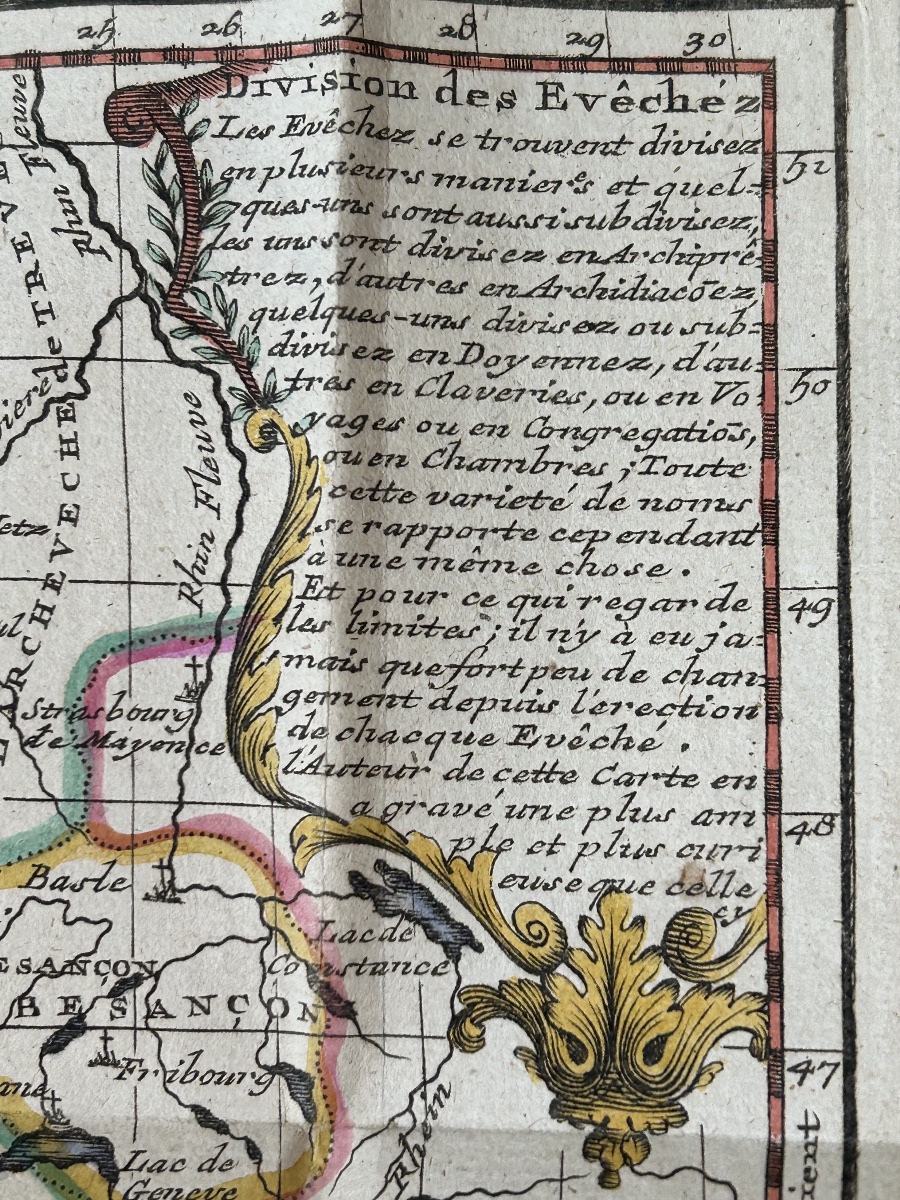 25 26 27 28 29 30
Division des Evêchéz
Les Evêchez se trouvent divisez
en plusieurs manieres et quel-
ques-uns sont aussi subdivisez,
les uns sont divisez en Archiprê-
trez, d'autres en Archidiacōez,
quelques-uns divisez ou sub-
divisez en Doyennez, d'au-
tres en Claveries, ou en Vo-
yages ou en Congregatiōs,
ou en Chambres ; Toute
cette varieté de noms
se rapporte cependant
à une même chose .
Et pour ce qui regarde
les limites ; il n'y à eu ja-
mais que fort peu de chan-
gement depuis l'érection
de chacque Evêché .
l'Auteur de cette Carte en
a gravé une plus am
ple et plus curi
euse que celle
cy
51
50
49
48
47
ient
Rhin Fleuve
de TREVE
ARCHEVECHE
iere
etz
Rhin Fleuve
ul
Strasbourg
de Mayence
Basle
Lac de
Constance
ESANÇON
BESANÇON
Fribourg
ane
Rhein
Lac de
Geneve